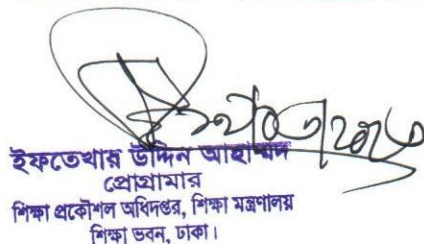 ইফতেখার উদ্দিন আহাম্মদ
প্রোগ্রামার
শিক্ষা প্রকৌশল অধিদপ্তর, শিক্ষা মন্ত্রণালয়
শিক্ষা ভবন, ঢাকা।